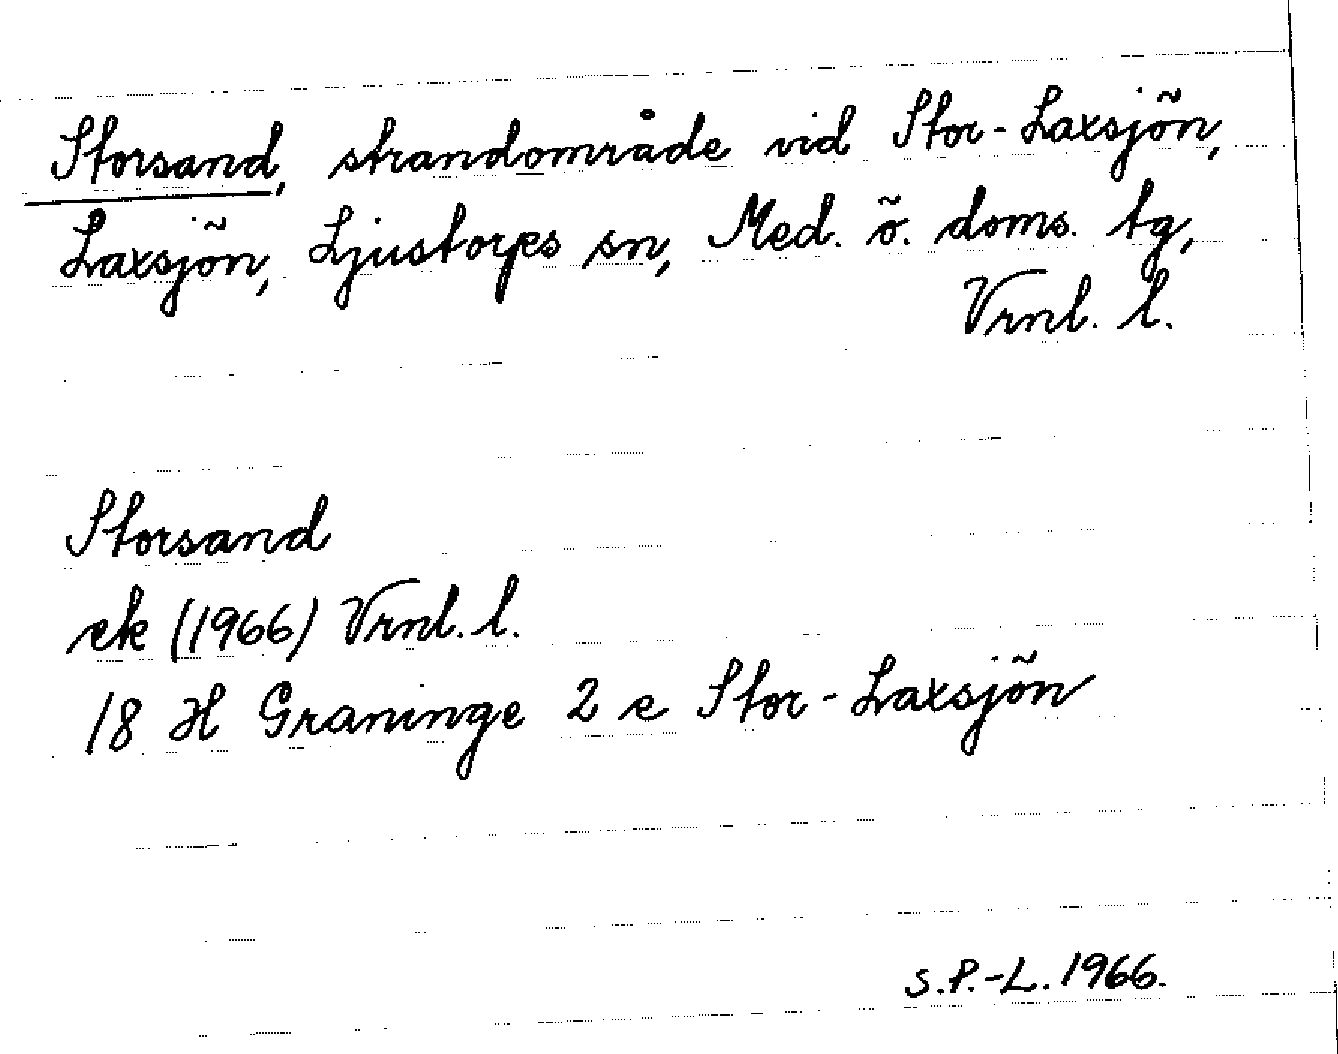 Storsand, strandområde vid Stor-Laxsjön,
Laxsjön, Ljustorps sn, Med. ö. doms. tg,
Vrnl. l.
Storsand
ek (1966) Vrnl. l.
18 H Graninge 2 c Stor-Laxsjön
S.P.-L. 1966.